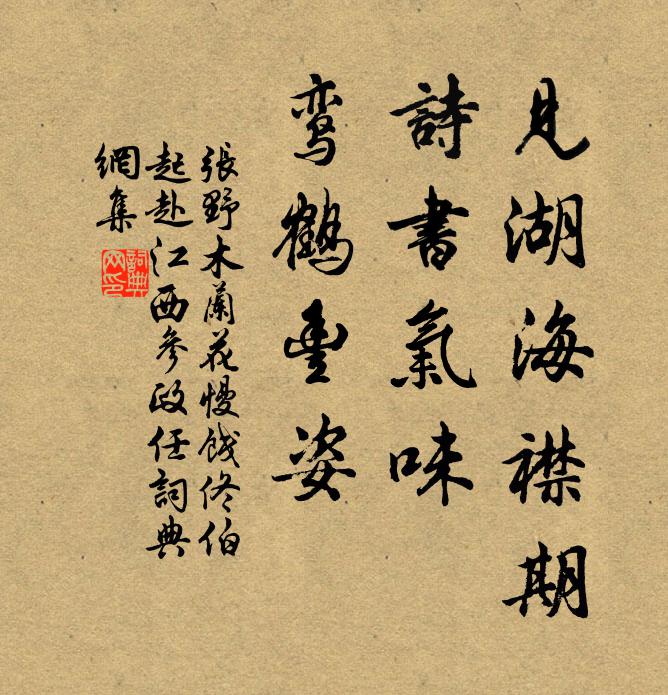 見湖海襟期
詩書氣味
鸞鶴豐姿
張野木蘭花慢餞佟伯
起赴江西參政任詞典
網集
詞典网印